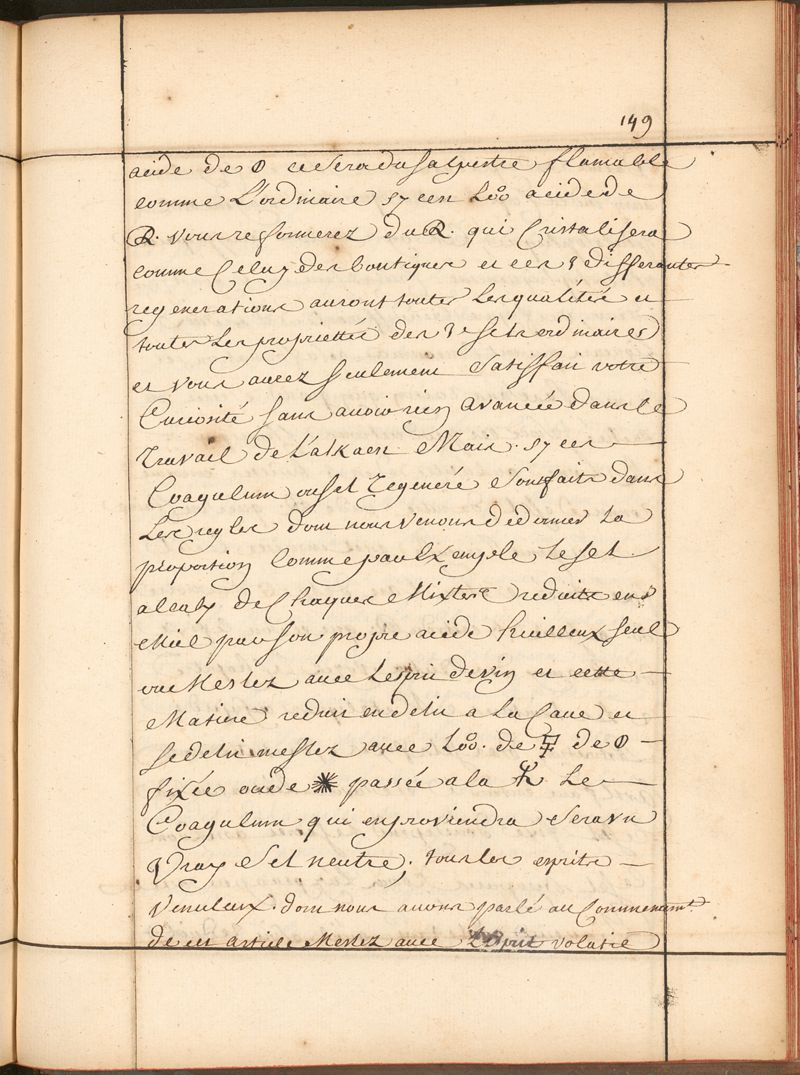 149
acide de 🜕 ce sera du salpestre flamable
comme L'ordinaire sy cest L'esprit acide de
R. vous reformerez du R. qui Cristalisera
comme Celuy des boutiques et ces 3 differantes
regenerations auront toutes Les qualités et
toutes Les proprietées des 3 sels ordinaires
et vous aurez seulement satisfait votre
Curiosité sans avoir rien avancée dans le
Travail de L'alkaest Mais. sy ces
Coagulum ou sel regeneré sont faits dans
Les regles dont nous venons de donner la
proportion comme par Exemple le sel
alcaly de Chaques Mixtes reduits en
Miel par son propre acide huilleux seul
ou Meslez avec Lesprit de vin et cette
Matiere reduit en deliu a La Cave et
se deliu meslez avec de 🜕
fixée ou de ✳ passée a la Le
Coagulum qui en proviendra sera un
Vray Sel neutre, tous les esprits
Venulaux. dont nous avons parlé au Commencemt.
de cet article Meslez avec L'Esprit volatil